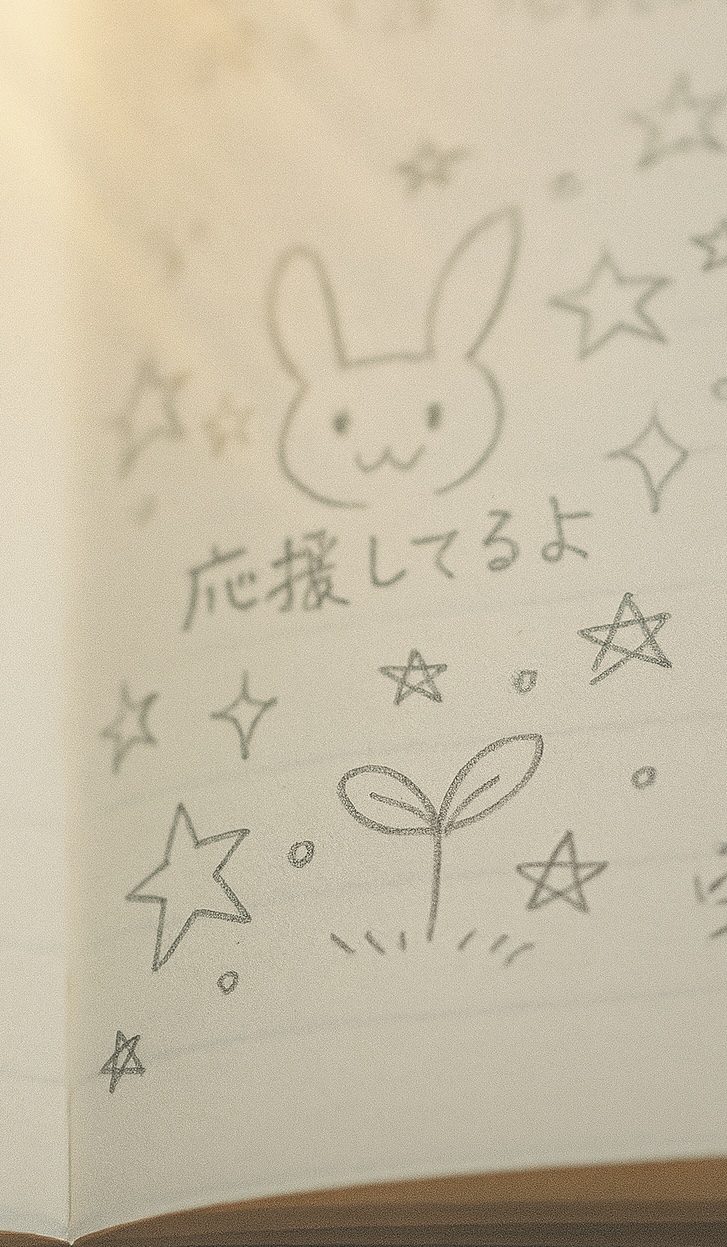 応援してるよ